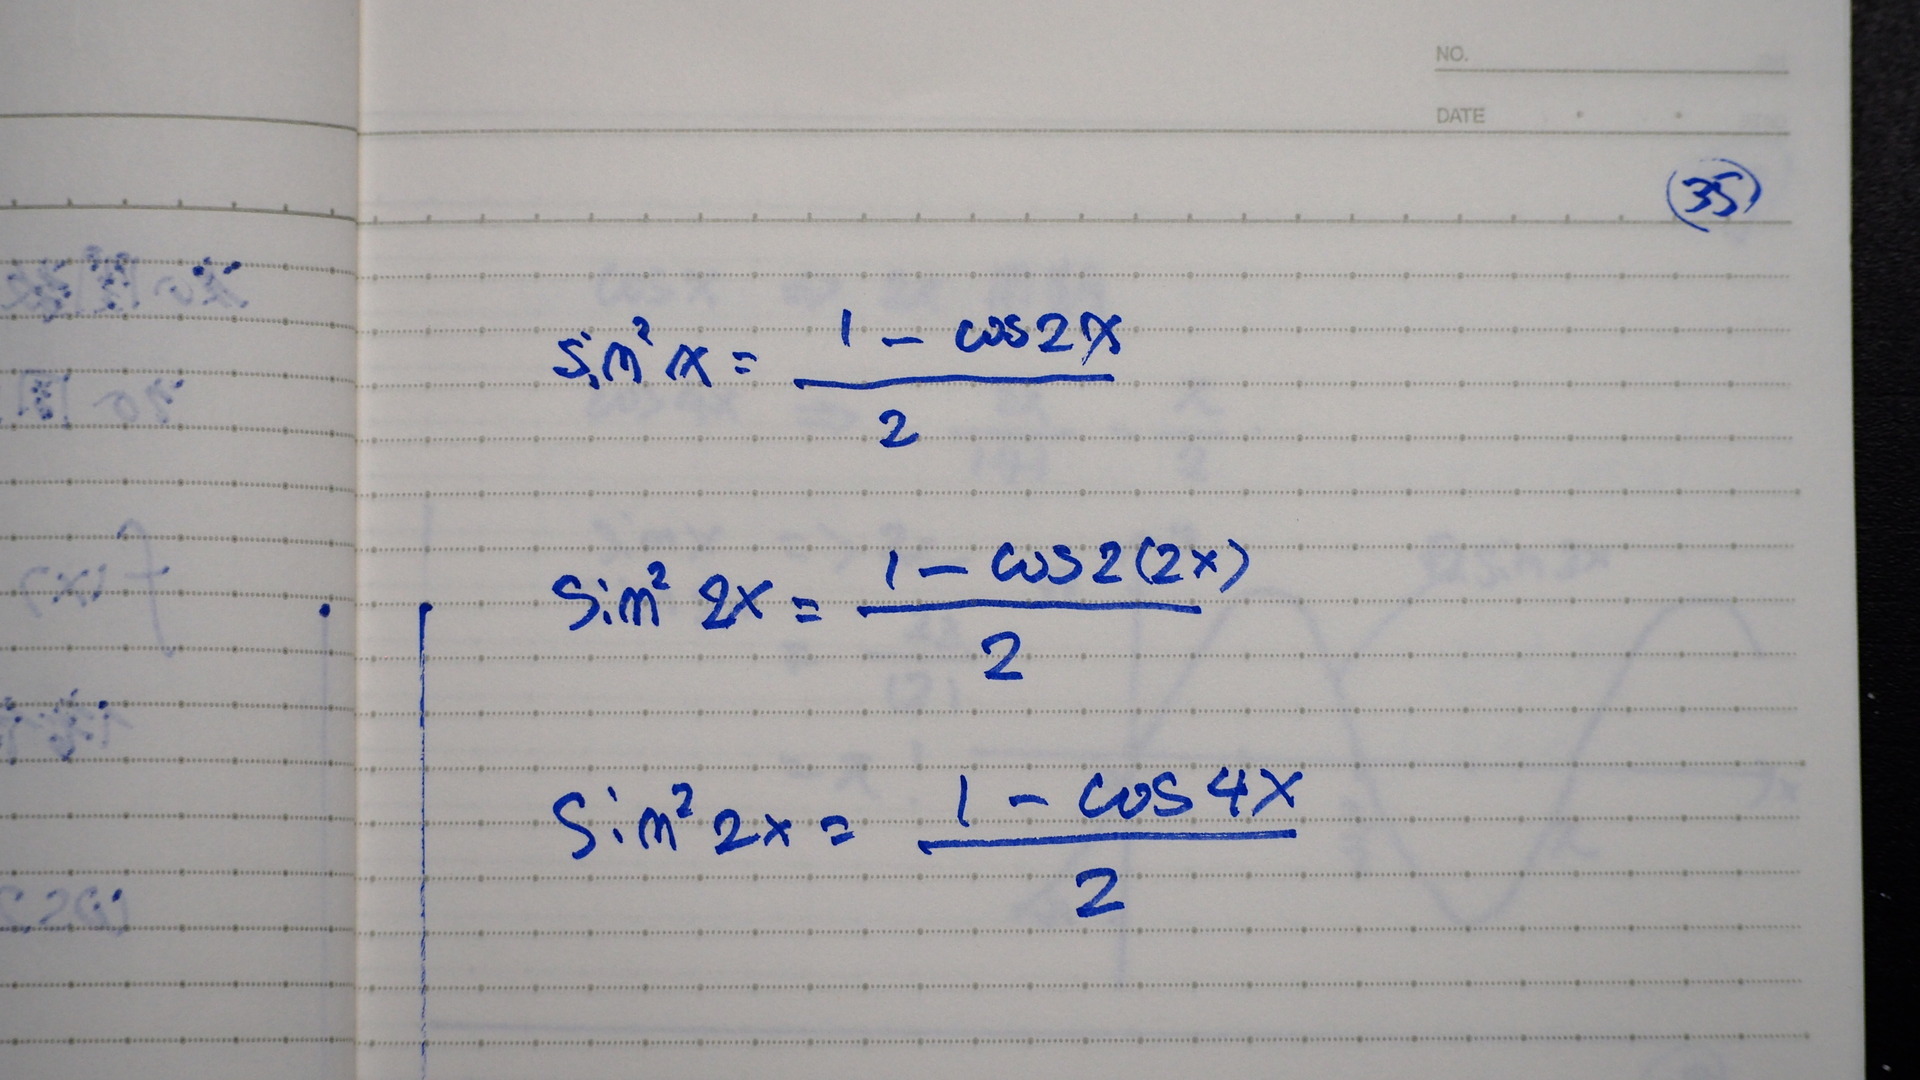 NO.
DATE
35
sin² x = (1 - cos2x)/2
sin² 2x = (1 - cos2(2x))/2
sin² 2x = (1 - cos4x)/2